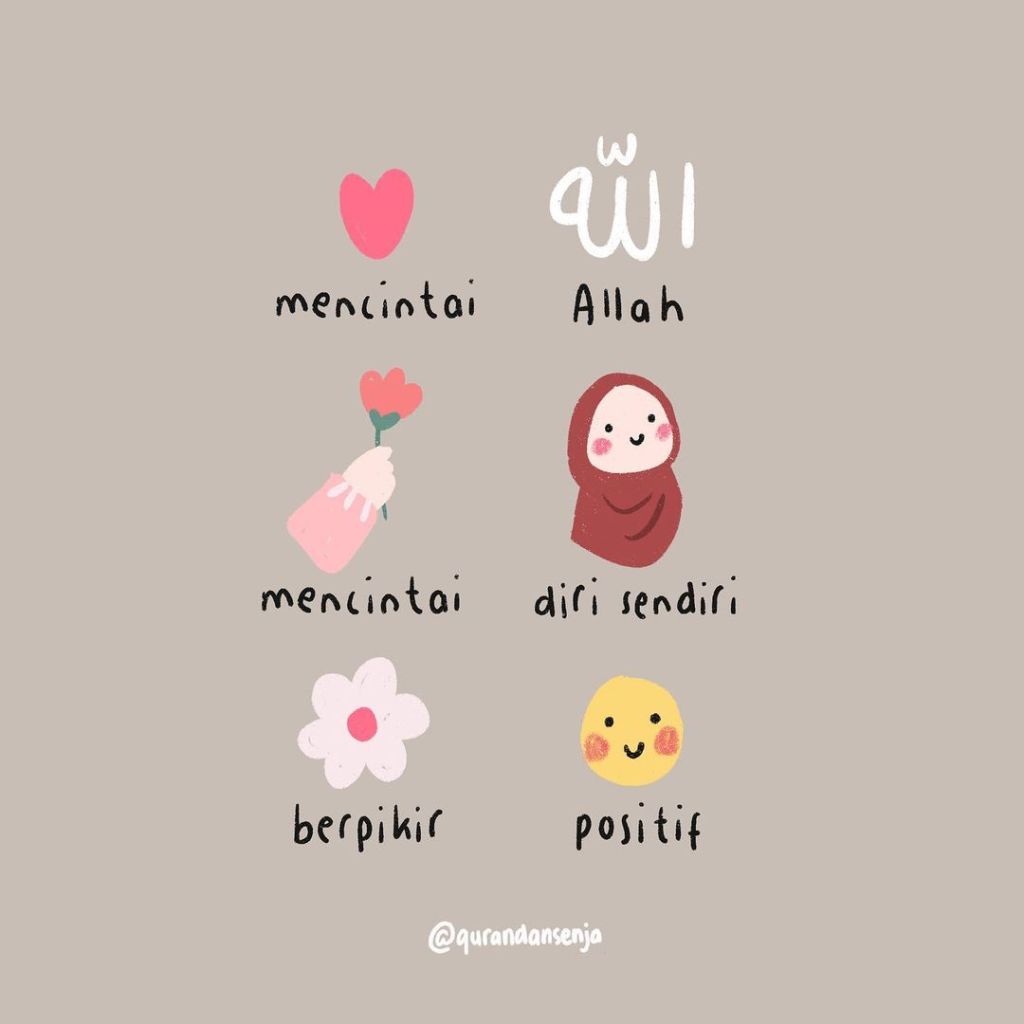 الله
mencintai Allah
mencintai diri sendiri
berpikir positif
@qurandansenja